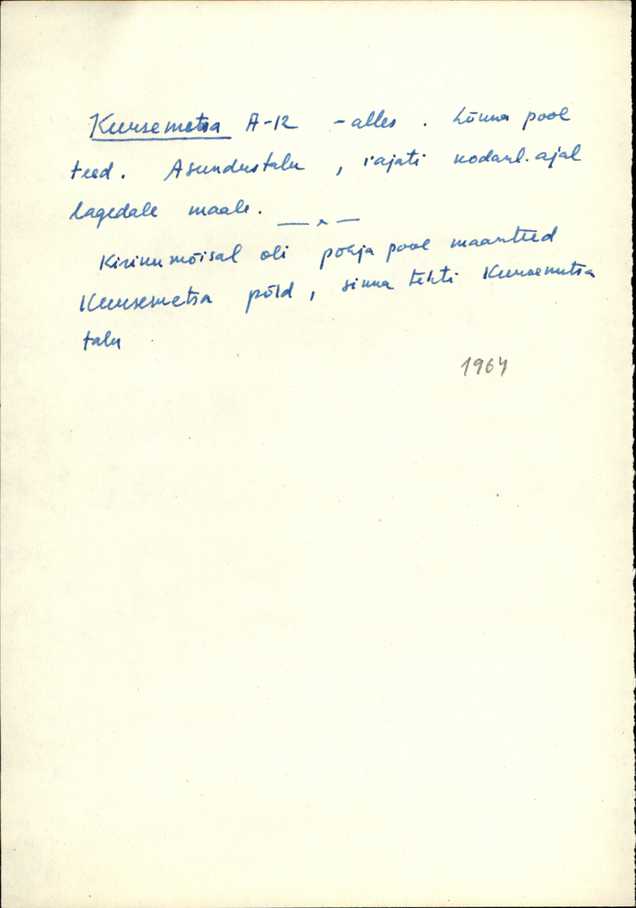 Kuusemetsa A-12 - alles. Lõuna pool
teed. Asundustalu, rajati kodanl. ajal
lagedale maale.
— " —
Kirinumõisal oli põhja pool maanteed
Kuusemetsa põld, sinna tehti Kuusemetsa
talu
1964